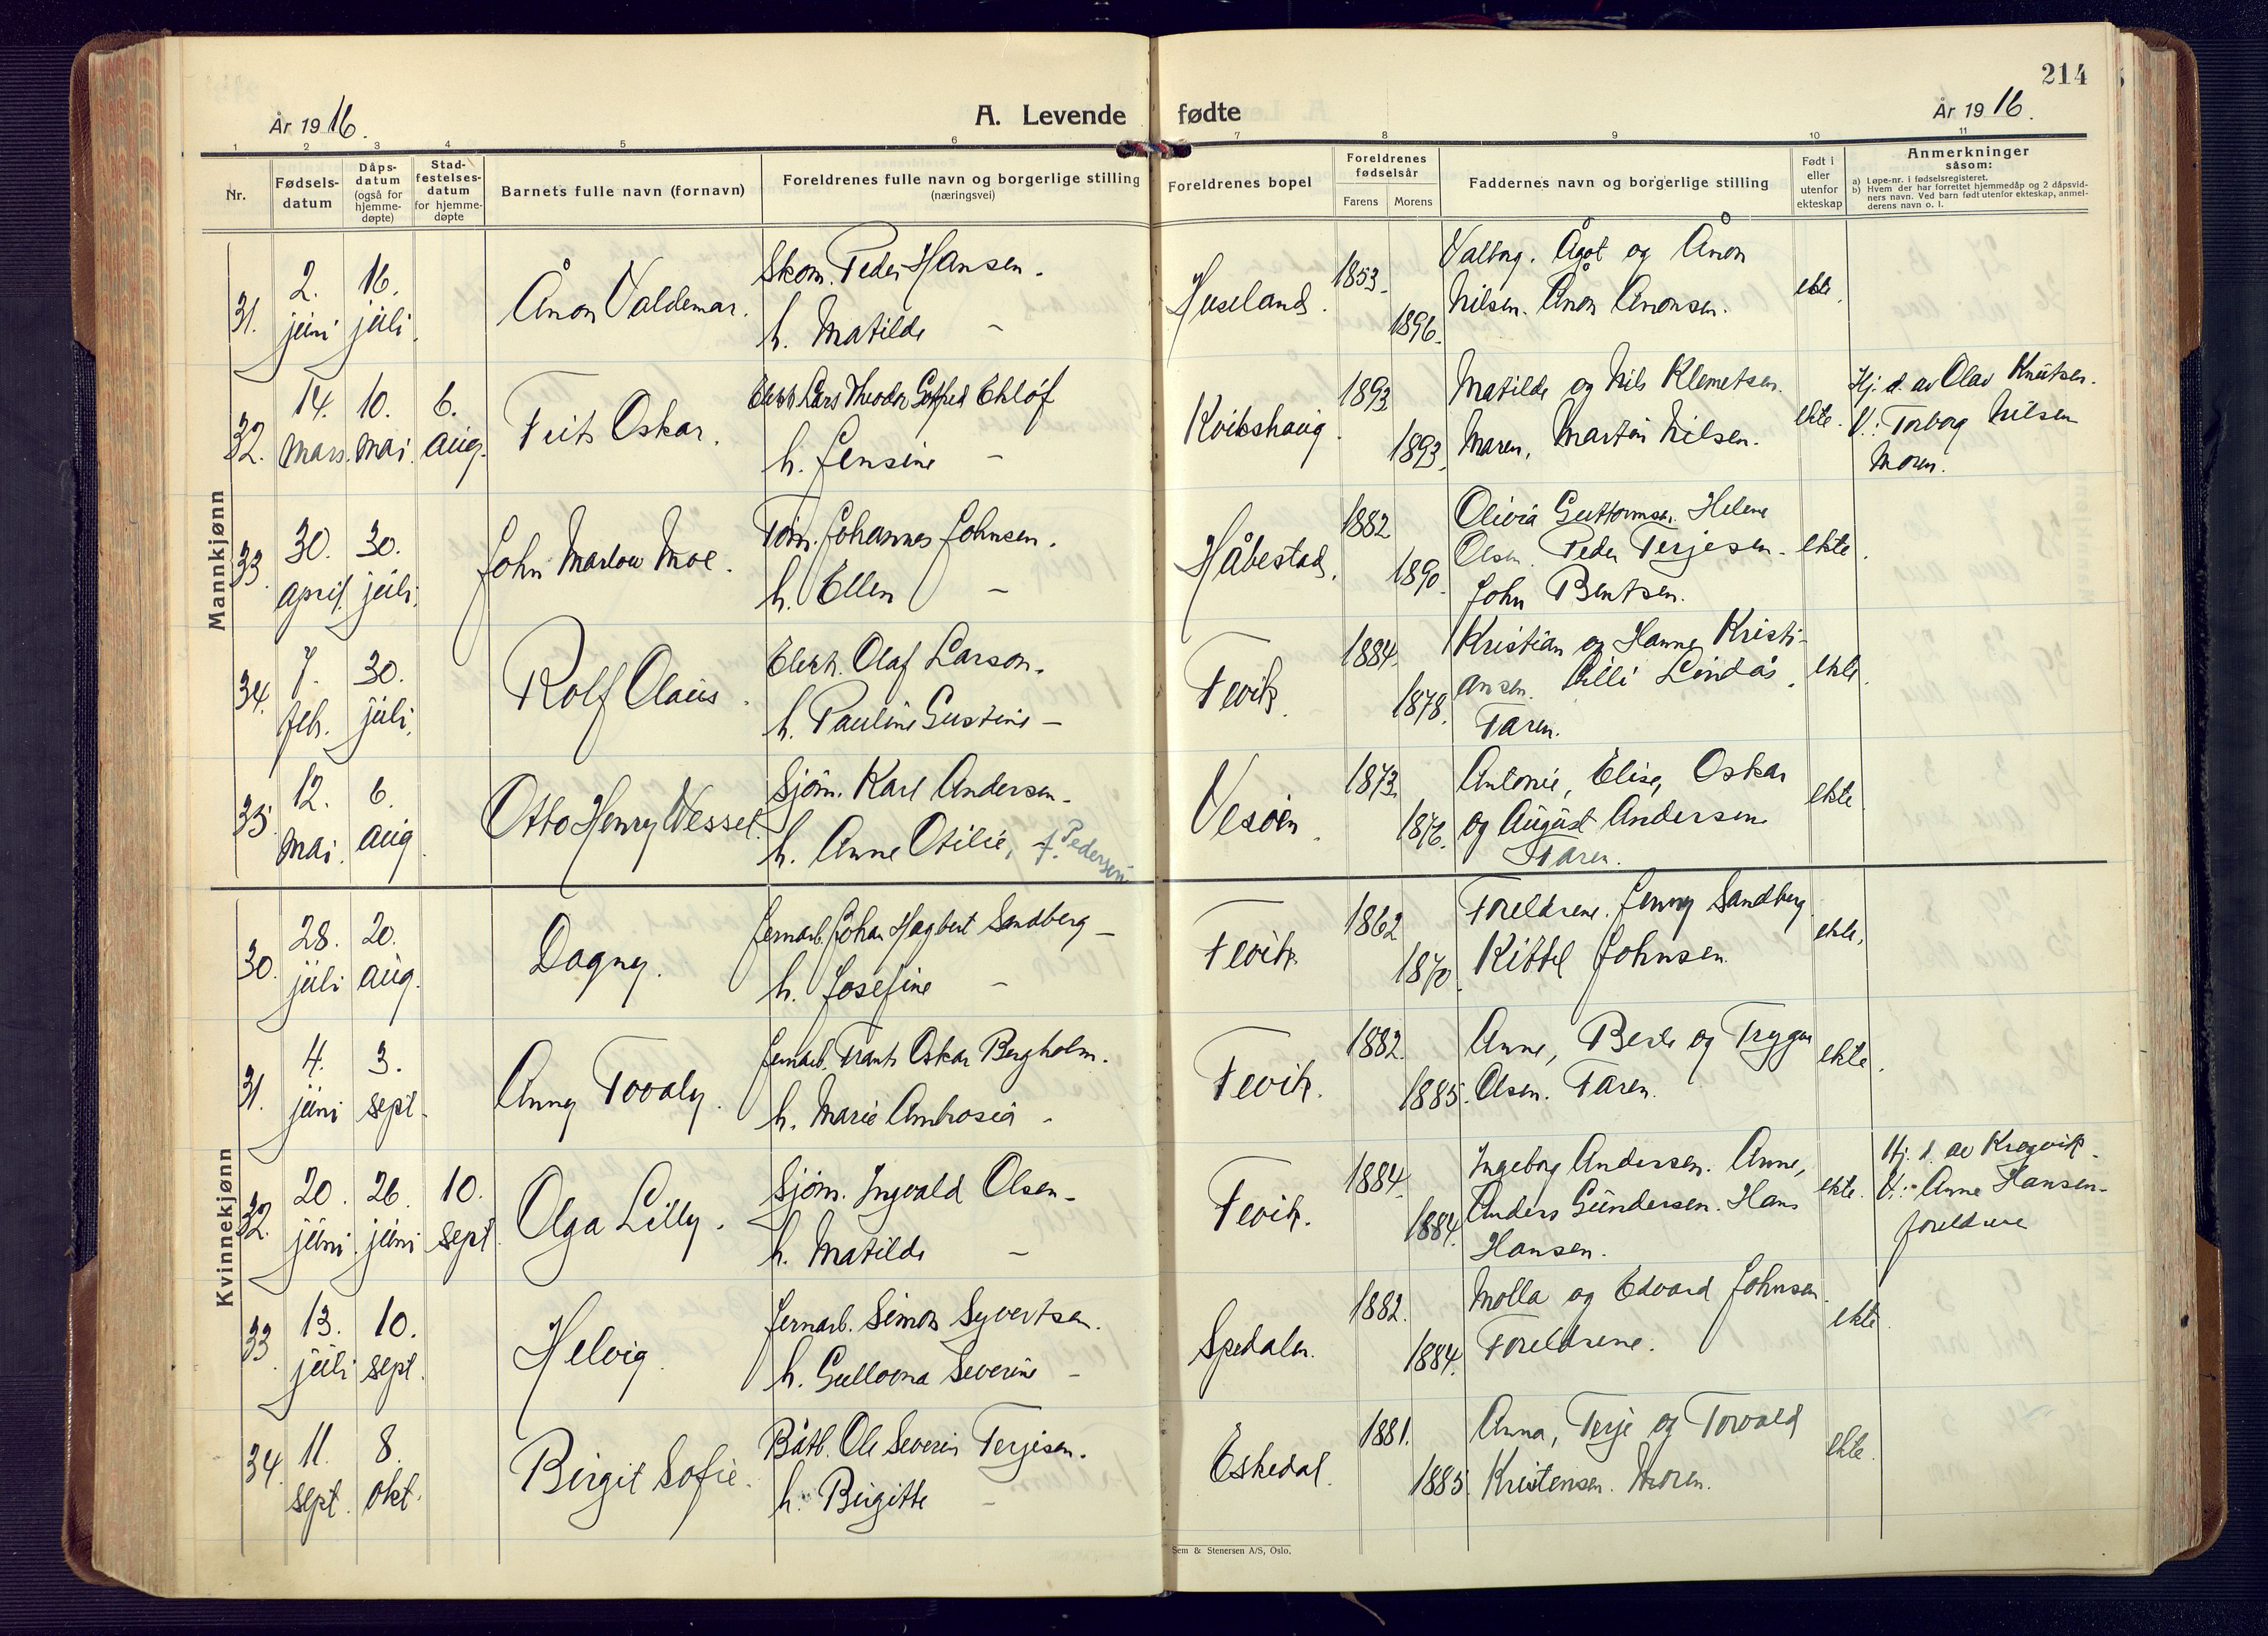 214
År 1916.
A. Levende fødte
År 1916.
1 2 3 4 5 6 7 8 9 10 11
Nr.
Fødsels-
datum
Dåps-
datum
(også for
hjemme-
døpte)
Stad-
festelses-
datum
for hjemme-
døpte
Barnets fulle navn (fornavn)
Foreldrenes fulle navn og borgerlige stilling
(næringsvei)
Foreldrenes bopel
Foreldrenes
fødselsår
Farens Morens
Faddernes navn og borgerlige stilling
Født i
eller
utenfor
ekteskap
Anmerkninger
såsom:
a) Løpe-nr. i fødselsregisteret.
b) Hvem der har forrettet hjemmedåp og 2 dåpsvid-
ners navn. Ved barn født utenfor ekteskap, anmel-
derens navn o. l.
Mannkjønn
31. 2. juni 16. juli. Ånon Valdemar.
Skom. Peder Hansen.
h. Matilde –
Huseland. 1853. 1896.
Valborg. Ågot og Ånon
Nilsen. Ånon Ånonsen.
ekte.
32. 14. mars. 10. mai. 6. aug. Frits Oskar.
Elekt. Lars Theodor Gotfred Ekløf
h. Jensine –
Kvikshaug. 1893. 1893.
Matilde og Nils Klemetsen.
Maren, Martin Nilsen.
ekte.
Hj. d. av Olav Knutsen.
V.: Torborg Nilsen
Moren.
33. 30. april. 30. juli. John Marlow Moe.
Tøm. Johannes Johnsen.
h. Ellen –
Håbestad. 1882 1890.
Olivia Guttormsen. Helene
Olsen. Peder Terjesen.
John Bentsen.
ekte.
34. 7. feb. 30. juli. Rolf Olaus.
Elekt. Olaf Larson.
h. Pauline Gustine –
Fevik. 1884. 1878.
Kristian og Hanna Kristi-
ansen. Lilli Lindås.
Faren.
ekte.
35. 12. mai. 6. aug. Otto Henry Wessel.
Sjøm. Karl Andersen.
h. Anne Otilie, f. Pedersen
Vesøen. 1873. 1876.
Antonie, Elise, Oskar
og August Andersen
Faren.
ekte
Kvinnekjønn
30. 28. juli 20. aug. Dagny.
Jernarb. Johan Hagbert Sandberg –
h. Josefine –
Fevik. 1862 1870.
Foreldrene. Jenny Sandberg
Kittel Johnsen.
ekte.
31. 4. juni 3. sept. Anny Tovaly.
Jernarb. Frants Oskar Bergholm.
h. Marie Ambrosia –
Fevik. 1882. 1885.
Anne, Berte og Trygve
Olsen. Faren.
ekte.
32. 20. juni. 26. juni 10. sept. Olga Lilly.
Sjøm. Ingvald Olsen –
h. Matilde –
Fevik. 1884. 1884.
Ingeborg Andersen. Anne,
Anders Gundersen. Hans
Hansen.
ekte.
Hj. d. av Kragvik.
V.: Anne Hansen.
foreldrene
33. 13. juli 10. sept. Helvig.
Jernarb. Simon Syvertsen.
h. Gullovna Severine –
Spedalen. 1882. 1884.
Molla og Edvard Johnsen.
Foreldrene.
ekte.
34. 11. sept. 8. okt. Birgit Sofie.
Båtb. Ole Severin Terjesen.
h. Birgitte –
Eskedal. 1881. 1885.
Anna, Terje og Torvald
Kristensen. Moren.
ekte.
Sem & Stenersen A/S, Oslo.